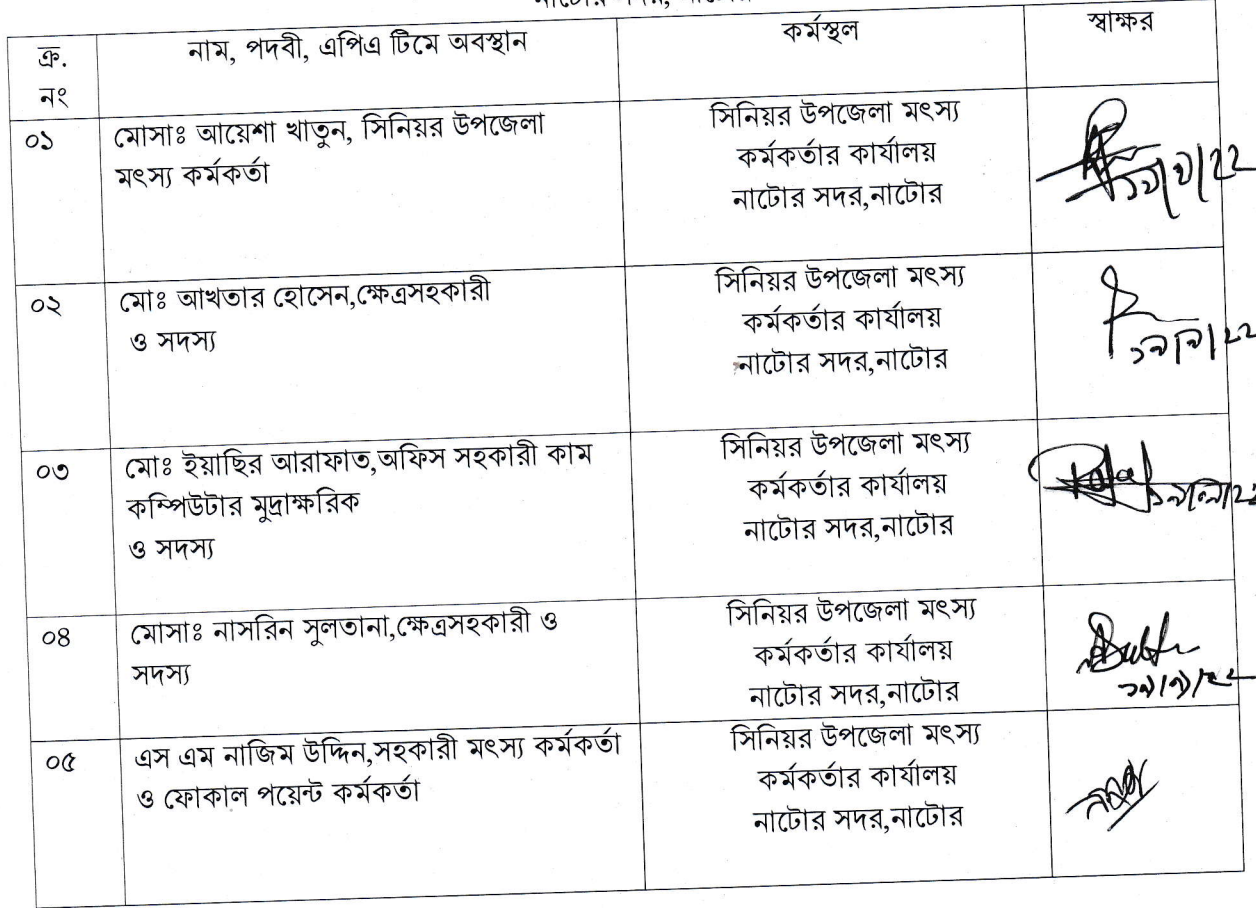 ক্র.
নং
নাম, পদবী, এপিএ টিমে অবস্থান
কর্মস্থল
স্বাক্ষর
০১
মোসাঃ আয়েশা খাতুন, সিনিয়র উপজেলা
মৎস্য কর্মকর্তা
সিনিয়র উপজেলা মৎস্য
কর্মকর্তার কার্যালয়
নাটোর সদর,নাটোর
০২
মোঃ আখতার হোসেন,ক্ষেত্রসহকারী
ও সদস্য
সিনিয়র উপজেলা মৎস্য
কর্মকর্তার কার্যালয়
নাটোর সদর,নাটোর
০৩
মোঃ ইয়াছির আরাফাত,অফিস সহকারী কাম
কম্পিউটার মুদ্রাক্ষরিক
ও সদস্য
সিনিয়র উপজেলা মৎস্য
কর্মকর্তার কার্যালয়
নাটোর সদর,নাটোর
০৪
মোসাঃ নাসরিন সুলতানা,ক্ষেত্রসহকারী ও
সদস্য
সিনিয়র উপজেলা মৎস্য
কর্মকর্তার কার্যালয়
নাটোর সদর,নাটোর
০৫
এস এম নাজিম উদ্দিন,সহকারী মৎস্য কর্মকর্তা
ও ফোকাল পয়েন্ট কর্মকর্তা
সিনিয়র উপজেলা মৎস্য
কর্মকর্তার কার্যালয়
নাটোর সদর,নাটোর